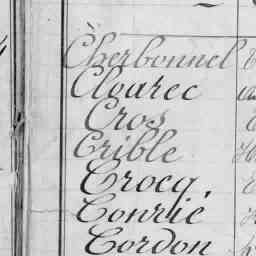 Cherbonnel
Clouarec
Cros
Crible
Crocq.
Conrié
Cordon